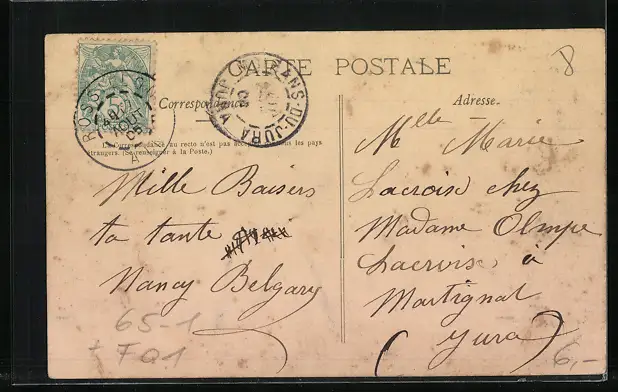 8
CARTE POSTALE
Correspondance
Adresse.
La Correspondance au recto n'est pas acceptée tous les pays
étrangers. (Se renseigner à la Poste.)
Mille Baisers
ta tante
Nancy Belgary
65-1
F01
Mlle Marie
Lacroix chez
Madame Olimpe
Lacroix à
Martignat
Jura
6,-